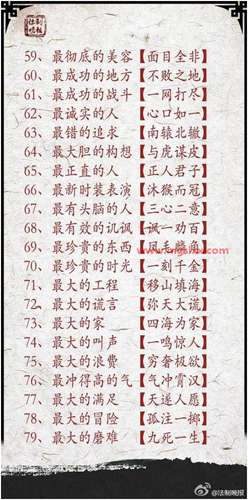 59、最彻底的美容【面目全非】
60、最成功的地方【不败之地】
61、最成功的战斗【一网打尽】
62、最诚实的人【心口如一】
63、最错的追求【南辕北辙】
64、最大胆的构想【与虎谋皮】
65、最正直的人【正人君子】
66、最新时装表演【沐猴而冠】
67、最有头脑的人【三心二意】
68、最有效的讥讽【一百】
69、最珍贵的东西【凤毛麟角】
70、最珍贵的时光【一刻千金】
71、最大的工程【移山填海】
72、最大的谎言【弥天大谎】
73、最大的家【四海为家】
74、最大的叫声【一鸣惊人】
75、最大的浪费【穷奢极欲】
76、最冲得高的气【气冲霄汉】
77、最大的满足【天遂人愿】
78、最大的冒险【孤注一掷】
79、最大的磨难【九死一生】
@法制晚报